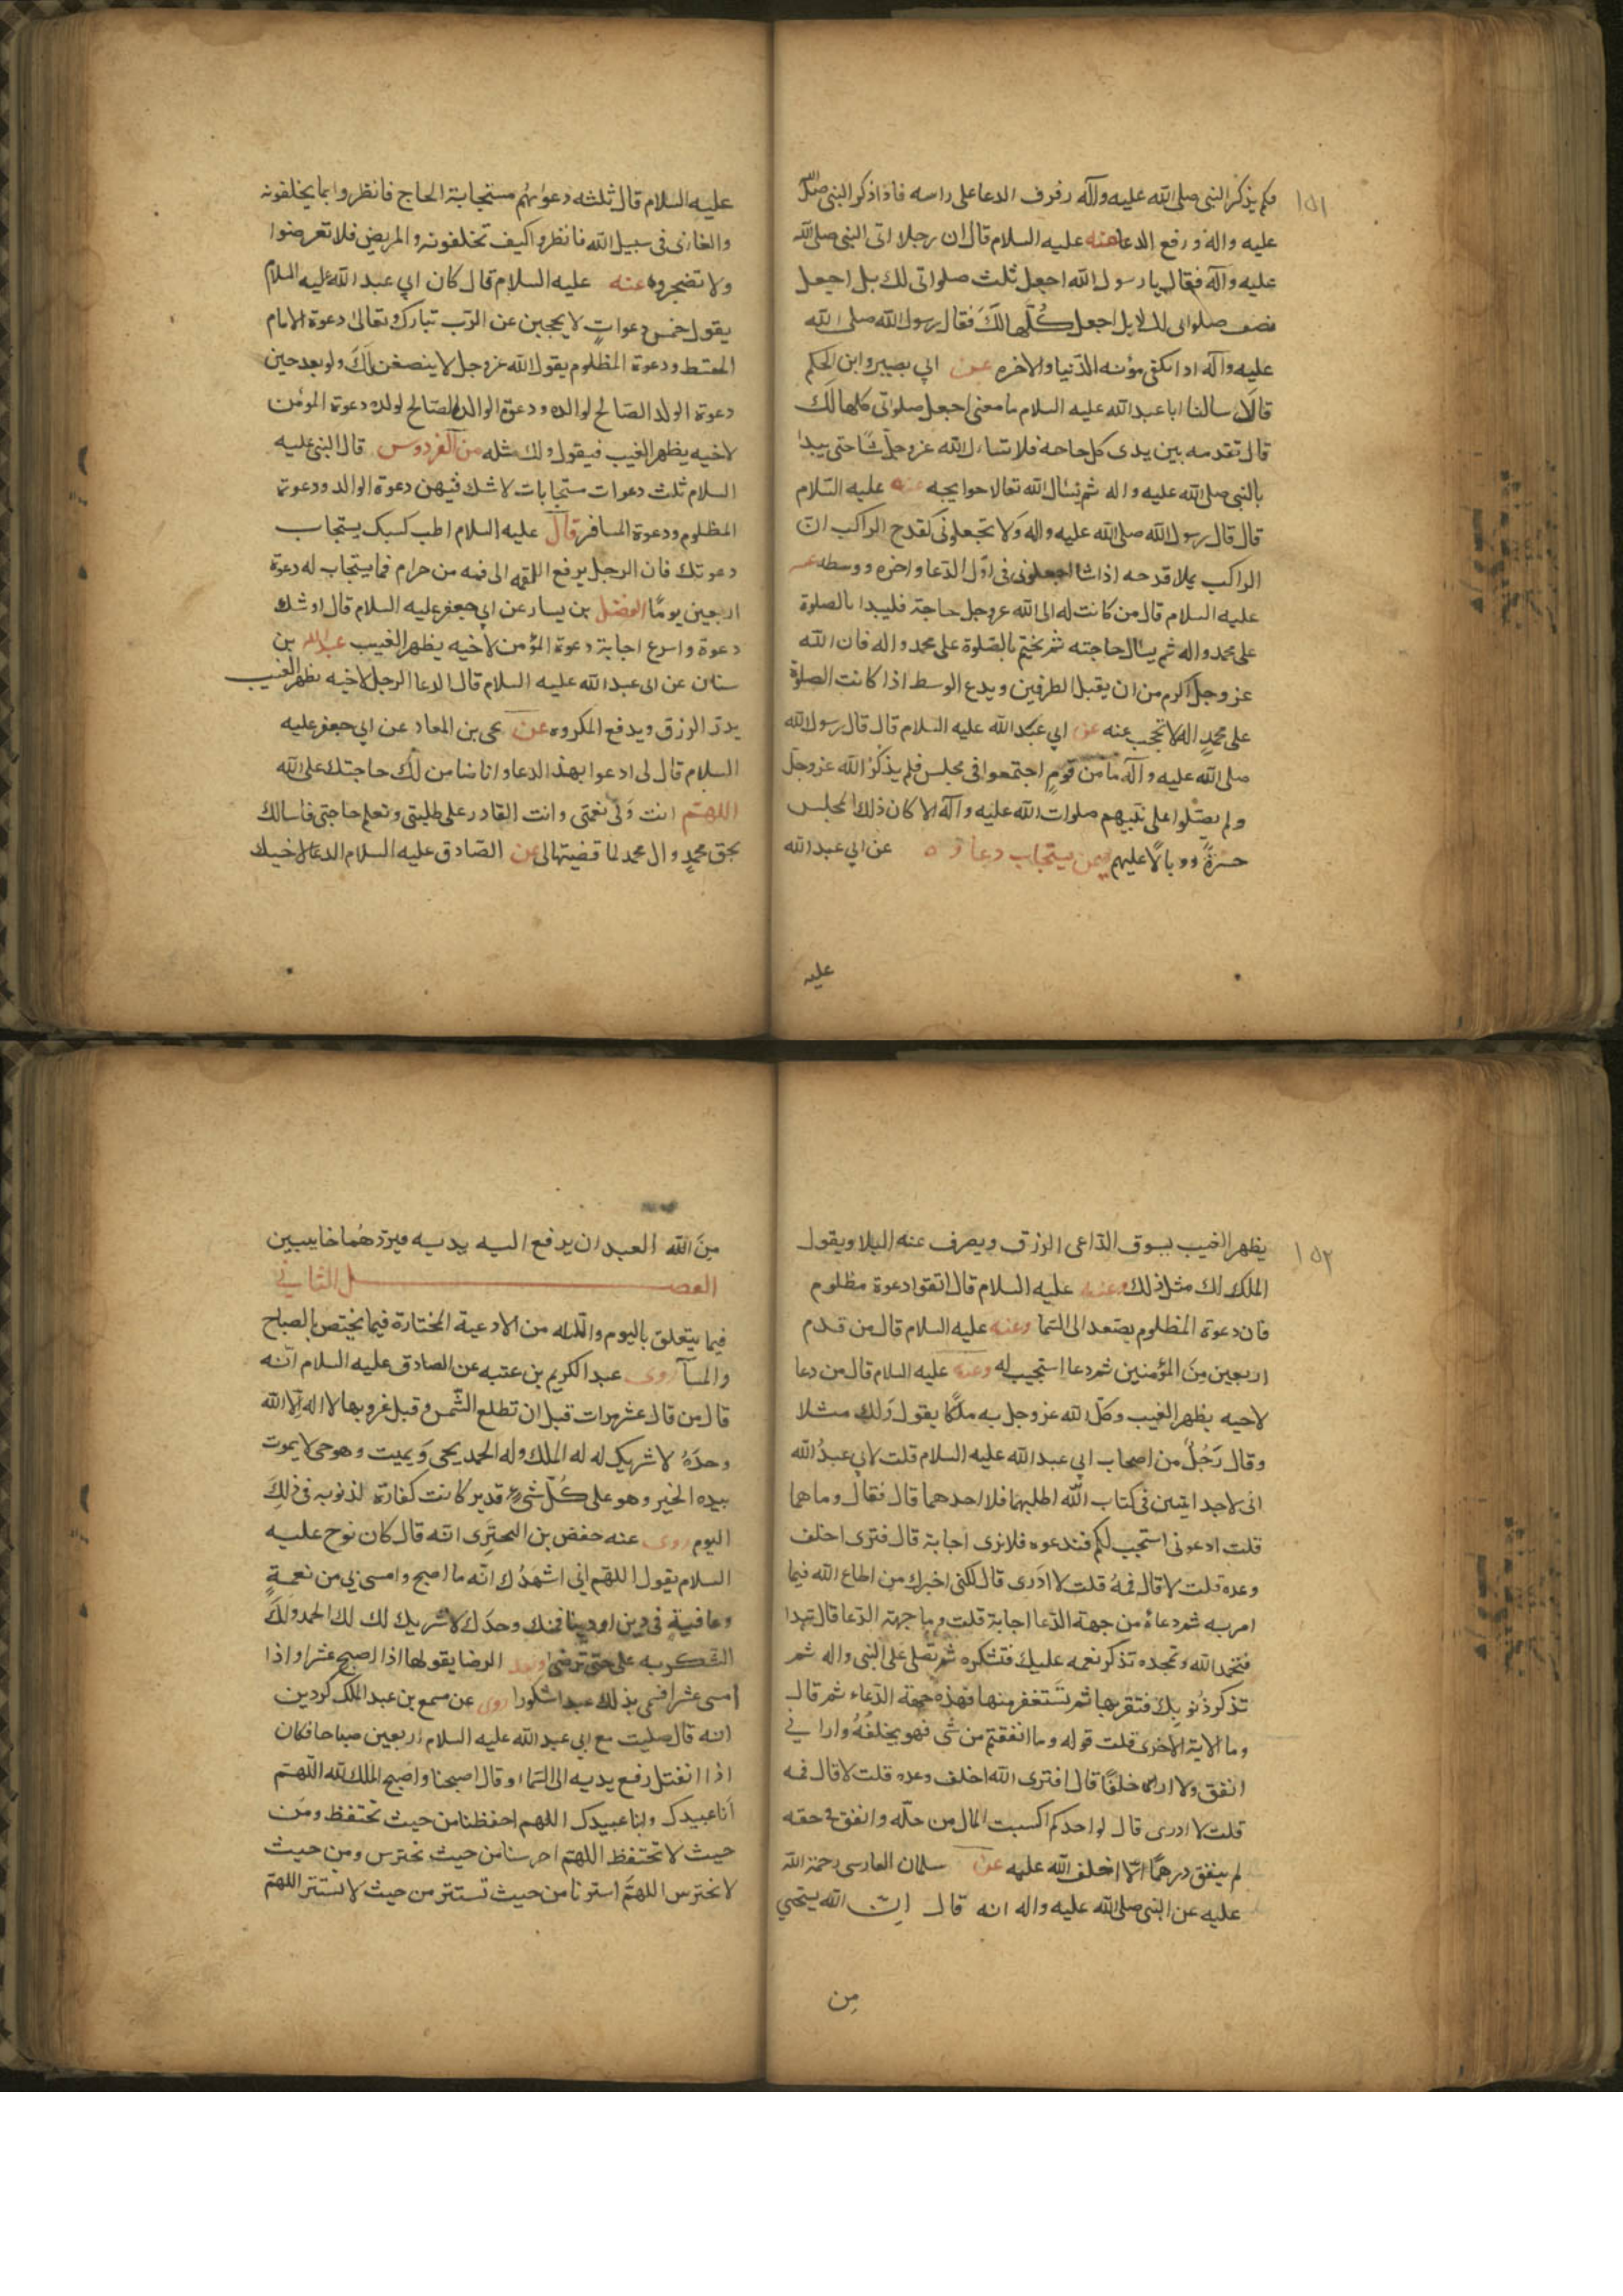 ١٥١
فلم يذكر النبى صلى الله عليه وآله رفرف الدعا على راسه فاذا ذكر النبى صلى الله
عليه واله ورفع الدعا عنه عليه السلام قال ان رجلا اتى النبى صلى الله
عليه وآله فقال يا رسول الله اجعل ثلث صلواتى لك بل اجعل
نصف صلواتى لك لا بل اجعل كُلّها لكَ فقال رسول الله صلى الله
عليه وآله اذا تكفى مؤنه الدّنيا والاخره عن ابي بصير وابن الحكم
قالَا سالنا ابا عبد الله عليه السلام ما معنى اجعل صلواتى كلها لك
قال تقدمه بين يدى كل حاجه فلا تسال الله عز وجل شيًا حتى يبدا
بالنبى صلى الله عليه واله ثم يسال الله تعالا حوايجه عنه عليه السّلام
قال قال رسول الله صلى الله عليه واله وَلا تجعلونى كقدح الراكب انّ
الراكب يملا قدحه اذا شا اجعلونى فى اوّل الدّعا واخره ووسطه عنه
عليه السلام قال من كانت له الى الله عز وجل حاجة فليبدا بالصلوة
على محمد واله ثم يسال حاجته ثم يختم بالصّلوة على محمد واله فان الله
عز وجل اكرم من ان يقبل الطرفين ويدع الوسط اذا كانت الصلوة
على محمدٍ اله لا تحجب عنه عن ابي عبد الله عليه السلام قال قال رسول الله
صلى الله عليه وآله ما من قومٍ اجتمعوا فى مجلس فلم يذكرُ الله عز وجل
ولم يصلوا على نبيهم صلوات الله عليه وآله الا كان ذلك المجلس
حسرةً ووبالًا عليهم فيمن يستجاب دعاؤه عن ابي عبد الله
عليه
عليه السلام قال ثلثه دعواتهم مستجابة الحاج فانظروا بما يخلفونه
والغازى فى سبيل الله فانظروا كيف تخلفونه والمريض فلا تعرضوا
ولا تضجروه عنه عليه السلام قال كان ابي عبد الله عليه السلام
يقول خمس دعواتٍ لا يحجبن عن الرّب تبارك وتعالى دعوة الامام
المقسط ودعوة المظلوم يقول الله عز وجل لا ينصفن لَكَ ولو بعد حين
دعوة الولد الصّالح لوالده ودعوة الوالد الصّالح لولده دعوة المؤمن
لاخيه يظهر الغيب فيقول ولك مثله من الفردوس قال النبى عليه
السلام ثلث دعوات مستجابات لا شك فيهن دعوة الوالد ودعوة
المظلوم ودعوة المسافر قال عليه السلام اطب كسبك يستجاب
دعوتك فان الرجل يرفع اللقمه الى فمه من حرام فما يستجاب له دعوة
اربعين يومًا الفضل بن يسار عن ابي جعفر عليه السلام قال اوشك
دعوة واسرع اجابة دعوة المؤمن لاخيه يظهر الغيب عبد الله بن
سنان عن ابى عبد الله عليه السلام قال الدعا الرجل لاخيه بظهر الغيب
يدرّ الرزق ويدفع المكروه عن يحى بن المعاد عن ابي جعفر عليه
السلام قال لى ادعوا بهذ الدعا وانا ضامن لك حاجتك على الله
اللهتم انت وَلى نعمتى وانت القادر على طلبتى وتعلم حاجتى فاسالك
بحق محمدٍ وال محمد لما قضيتها لى عن الصّادق عليه السلام الدعا لاخيك
١٥٢
يظهر الغيب يسوق الدّاعى الرزق ويصرف عنه البلا ويقول
الملك لك مثل ذلك وعنه عليه السلام قال اتقوا دعوة مظلوم
فان دعوة المظلوم يصَعد الى السّما وعنه عليه السلام قال من قدم
اربعين مِنَ المؤمنين ثم دعا استجيب له وعنه عليه السلام قال من دعا
لاخيه بظهر الغيب وكّل الله عز وجل به ملكًا يقول وَلك مثلا
وقال رَجُلٌ من اصحاب ابي عبد الله عليه السلام قلت لابي عبدُ الله
انى لاجد ايتين فى كتاب الله اطلبهما فلا احدهما قال فقال وما هما
قلت ادعونى استجب لكم فندعوه فلا نرى اجابة قال فترى اخلف
وعده قلت لا قال فمهُ قلت لا ادرى قال لكنى اخبرك من اطاع الله فيما
امر به ثم دعاهُ من جهة الدّعا اجابة قلت وما جهة الدّعا قال تبدا
فتحمد الله وتمجده تذكر نعمه عليك فتشكره ثم تصلى على النبى واله ثم
تذكر ذُنوبكَ فتقر بها ثم تَستغفر منها فهذه جهة الدّعاء ثم قال
وما الاية الاخرى قلت قوله وما انفقتم من شي فهو يخلفُهُ وارا نى
انفق ولا ارى خلفًا قال افترى الله اخلف وعده قلت لا قال فمه
قلت لا ادرى قال لو احدكم اكسبت المال من حلّه وانفق فى حقه
لم ينفق درهمًا الّا اخلف الله عليه عن سلمان الفارسى رحمة الله
عليه عن النبى صلى الله عليه واله انه قال اِنّ الله يستحيي
مِن
مِنَ الله العبد ان يرفع اليه يديه فيردهُما خايبين
الفصل الثاني
فيما يتعلق باليوم والليله من الادعية المختارة فيما يختص بالصباح
والمسآ روى عبد الكريم بن عتبه عن الصادق عليه السلام انّه
قال من قال عشر مرات قبل ان تطلع الشّمس وقبل غروبها لا اله اِلّا الله
وحدَهُ لا شريك له له الملك وله الحمد يحيى وَيميت وهو حى لا يموت
بيده الخير وهو على كُلّ شيٍ قدير كانت كفارة لذنوبه فى ذلِكَ
اليوم روى عنه حفض بن البحترى انه قال كان نوح عليه
السلام يقول اللهّم اني اشهَدُك انّه ما اصبح وامسى بي من نعمةٍ
وعافيةٍ فى دين او دينا فمنك وحدَك لا شريك لك لك الحمد ولك
الشكر به على حتى ترضى وبعد الرضا يقولها اذا اصبح عشرا واذا
امسى عشرا فسمى بذلك عبدا شكورا روى عن مسمع بن عبد الملك كردين
انه قال صليت مع ابي عبد الله عليه السلام اربعين صباحا فكان
اذا انفتل رفع يديه الى السّما وقال اصبحنا واصبح الملك لله اللّهتم
اَنا عبيدك وابنا عبيدك اللهم احفظنا من حيث نحتفظ ومن
حيث لا نحتفظ اللهتم احرسنا من حيث نحترس ومن حيث
لا نحترس اللهتم استرنا من حيث نستتر من حيث لا نستتر اللهتم